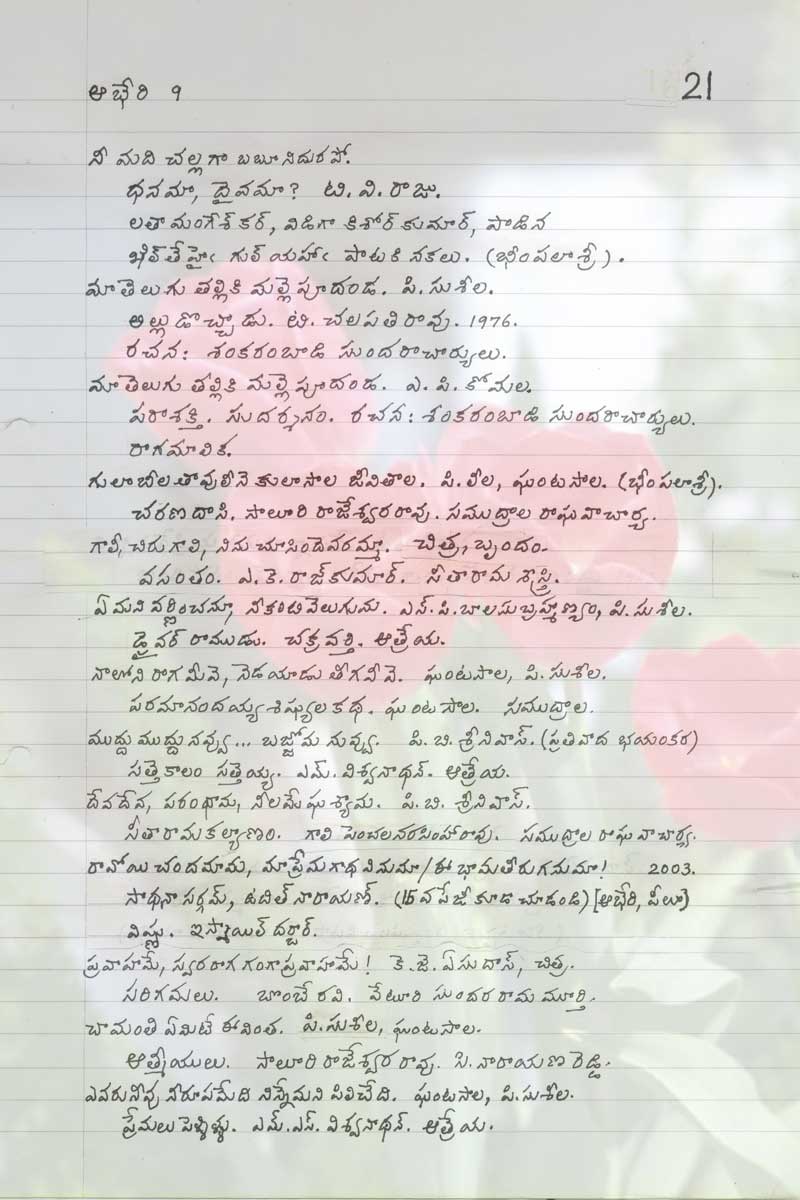 ఆభేరి 9
21
నీ మది చల్లగా బబూనిదురపో.
ధనమా, దైవమా? టి. వి. రాజు.
లతా మంగేశ్‌కర్, విడిగా కిశోర్ కుమార్, పాడిన
ఖిల్‌తే హైఁ గుల్ యహాఁ పాటకి నకలు. (భీంపలాశ్రీ).
మా తెలుగు తల్లికి మల్లె పూదండ. పి. సుశీల.
అల్లుడొచ్చాడు. టి. చలపతి రావు. 1976.
రచన: శంకరంబాడి సుందరాచార్యులు.
మా తెలుగు తల్లికి మల్లె పూదండ. ఎ. పి. కోమల.
పరాశక్తి. సుదర్శనం. రచన: శంకరంబాడి సుందరాచార్యులు.
రాగమాలిక.
గులాబీల తావులీనె కులాసాల జీవితాల. పి. లీల, ఘంటసాల. (భీంపలాశ్రీ).
చరణ దాసి. సాలూరి రాజేశ్వరరావు. సముద్రాల రాఘవాచార్య.
గాలీ, చిరుగాలి, నిను చూసిందెవరమ్మా. చిత్ర, బృందం.
వసంతం. ఎ. కె. రాజ్‌కుమార్. సీతారామ శాస్త్రి.
ఏమని వర్ణించను, నీకంటి వెలుగును. ఎస్. పి. బాలసుబ్రహ్మణ్యం, పి. సుశీల.
డ్రైవర్ రాముడు. చక్రవర్తి. ఆత్రేయ.
నాలోని రాగమీవె, నెడయాడు తీగవీవె. ఘంటసాల, పి. సుశీల.
పరమానందయ్య శిష్యుల కథ. ఘంటసాల. సముద్రాల.
ముద్దు ముద్దు నవ్వు... బజ్జోమ నువ్వు. పి. బి. శ్రీనివాస్. (ప్రతివాద భయంకర)
సత్తెకాలం సత్తెయ్య. ఎమ్. విశ్వనాథన్. ఆత్రేయ.
దేవదేవ, పరంధామ, నీలమేఘశ్యామ. పి. బి. శ్రీనివాస్.
సీతారామకల్యాణం. గాలి పెంచలనరసింహారావు. సముద్రాల రాఘవాచార్య.
రావోయి చందమామ, మా ప్రేమగాథ వినుమా/ఈ భామ తీరుగనుమా! 2003.
సాధనా సర్గమ్, ఉదిత్ నారాయణ్. (15 వ పేజీ కూడా చూడండి) [ఆభేరి, పీలూ]
విష్ణు. ఇస్మాయిల్ దర్బార్.
ప్రవాహమే, స్వరరాగ గంగాప్రవాహమే! కె. జె. ఏసుదాస్, చిత్ర.
సరిగమలు. బాంబే రవి. వేటూరి సుందర రామ మూర్తి.
చామంతి ఏమిటే ఈ వింత. పి. సుశీల, ఘంటసాల.
ఆత్మీయులు. సాలూరి రాజేశ్వర రావు. సి. నారాయణ రెడ్డి.
ఎవరు నీవు నీరూపమేది నిన్నేమని పిలిచేది. ఘంటసాల, పి. సుశీల.
ప్రేమలు పెళ్ళిళ్ళు. ఎమ్. ఎస్. విశ్వనాథన్. ఆత్రేయ.